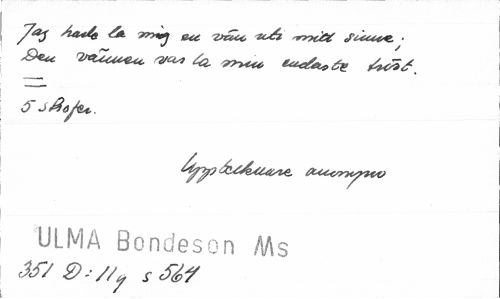 Jag hade la mig en vän uti mitt sinne;
Den vännen var la min endaste tröst.
5 strofer.
Upptecknare anonym
ULMA Bondeson Ms
351 D:11g s 564